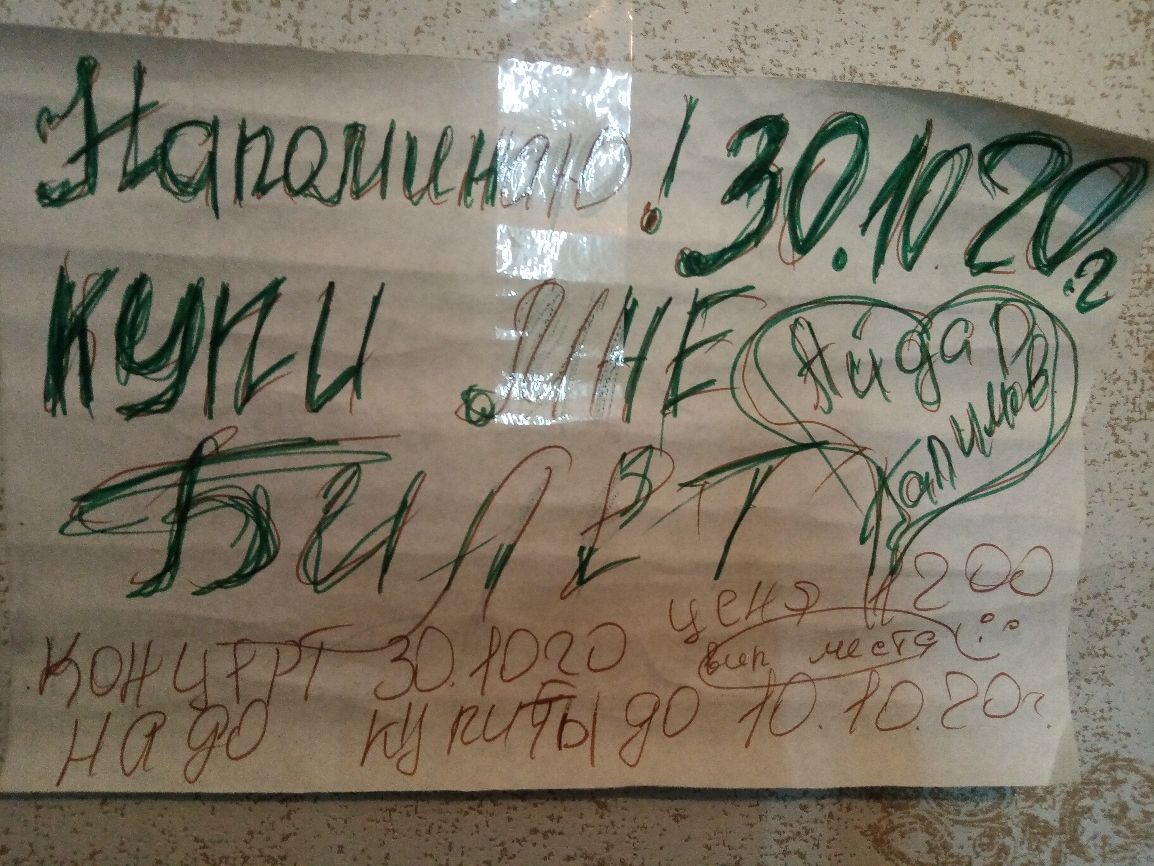 Напоминаю! 30.10 20.г
КУПИ МНЕ
Айдар
Халимов
БИЛЕТ
цена 1200
вип места
КОНЦЕРТ 30.1020
НАДО КУПИТЬ ДО 10.10.20г.